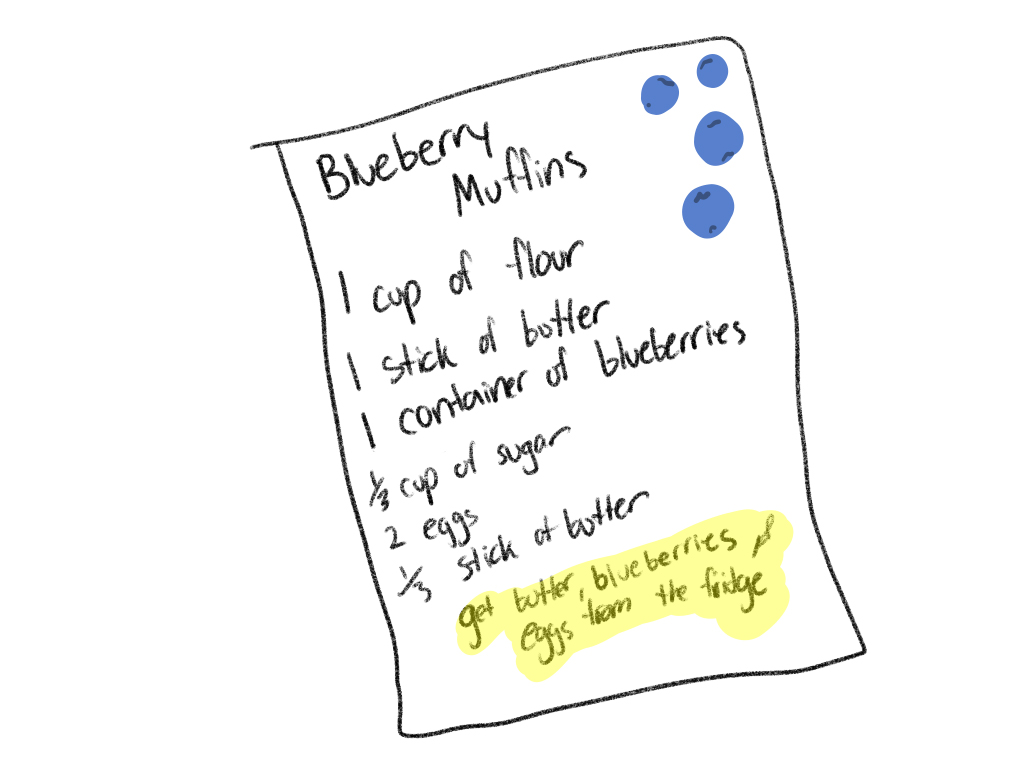 Blueberry
Muffins
1 cup of flour
1 stick of butter
1 container of blueberries
1/3 cup of sugar
2 eggs
1/3 stick of butter
get butter, blueberries &
eggs from the fridge